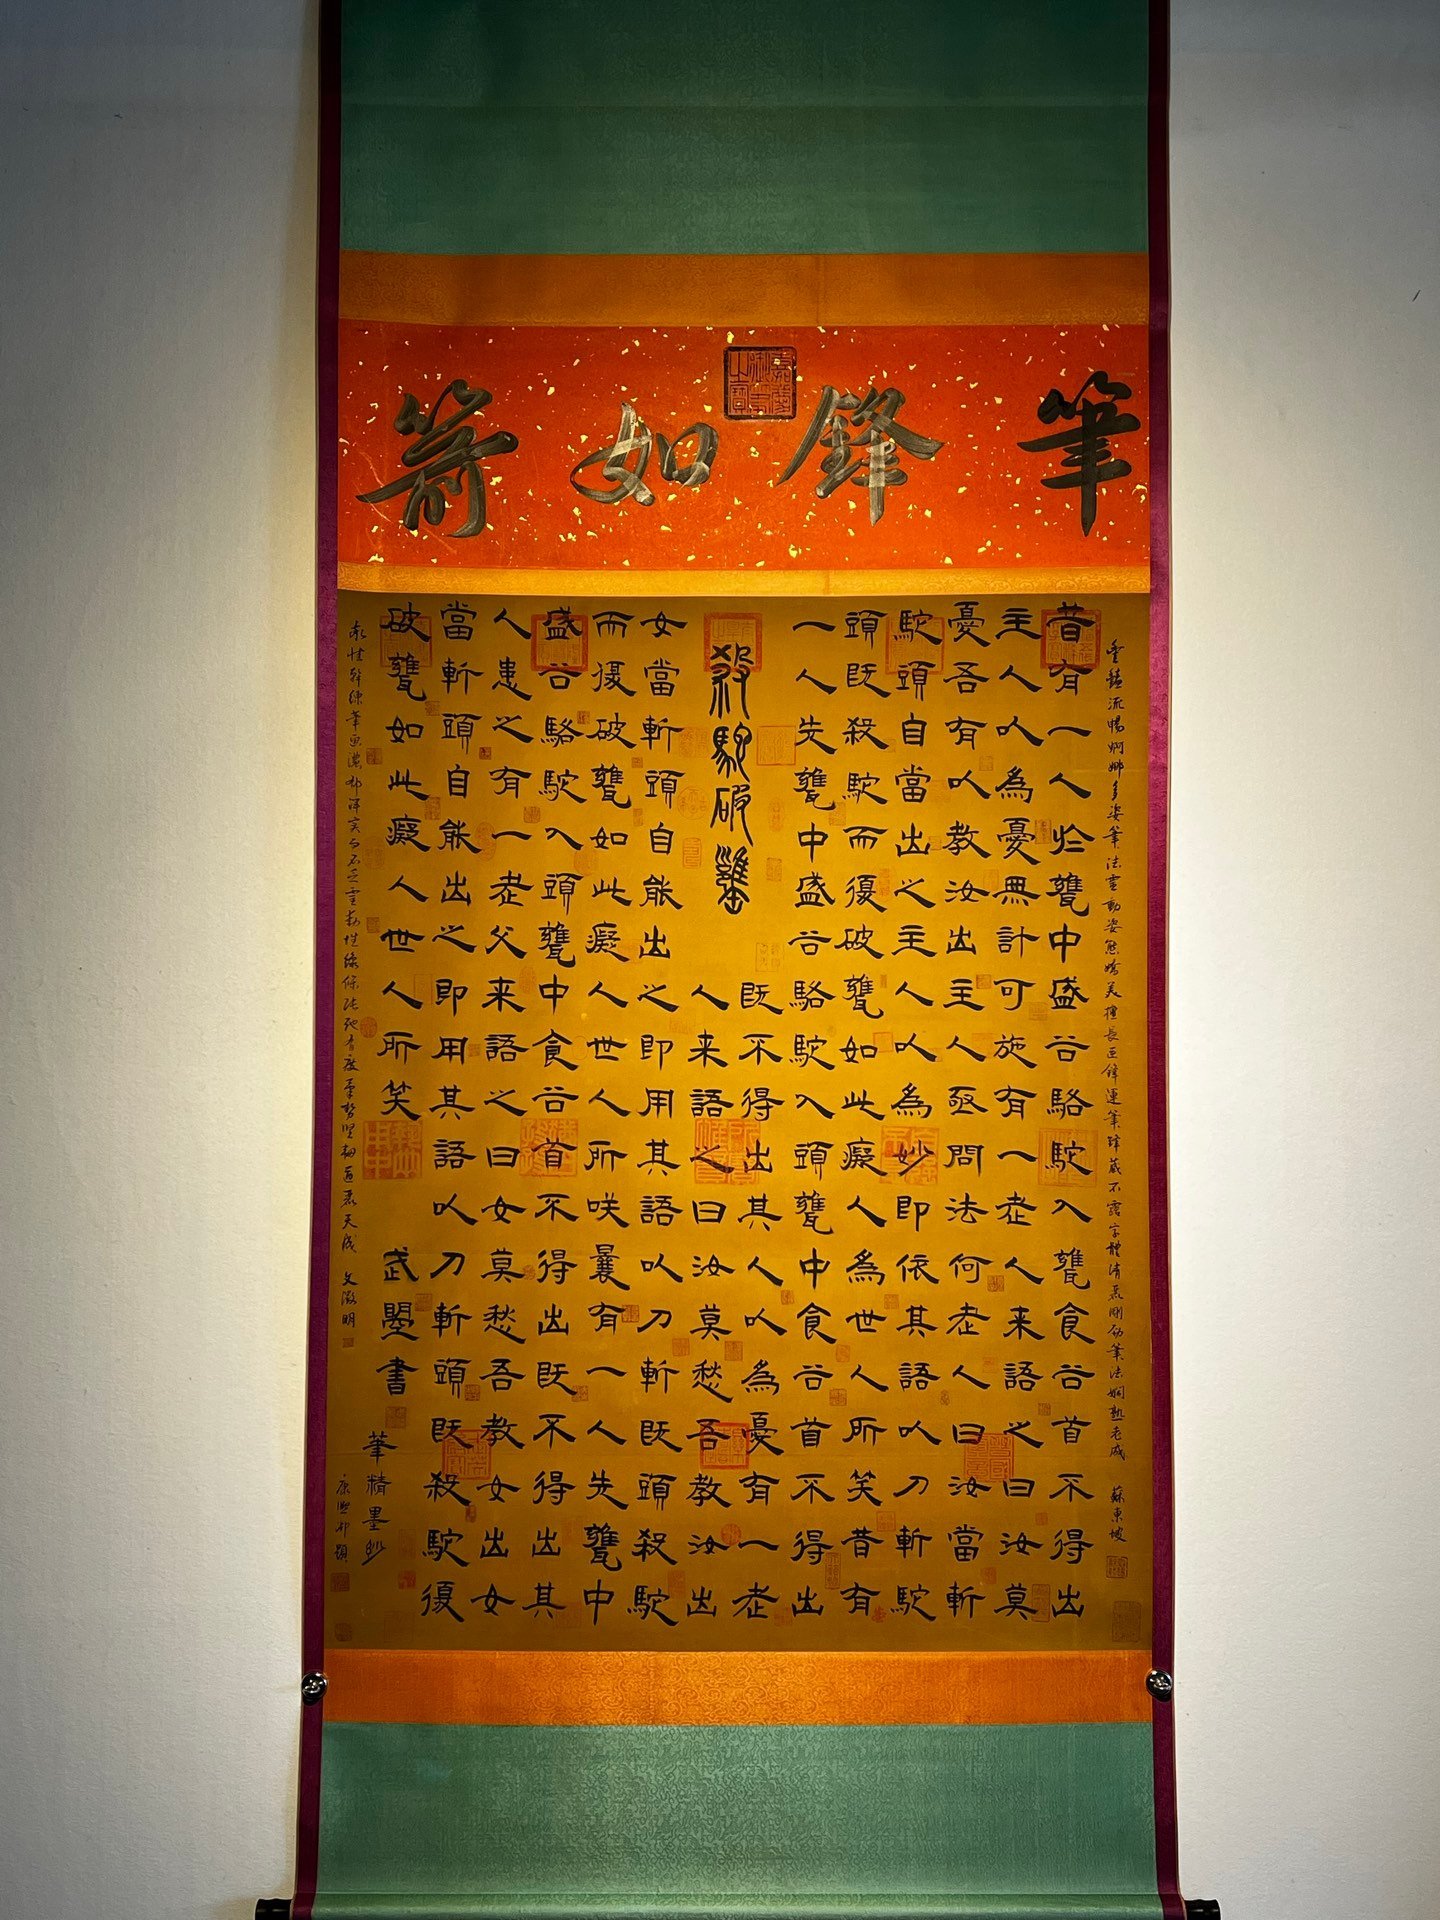 筆鋒如箭
流暢婀娜多姿筆法靈動姿態嬌美擅長正鋒運筆鋒藏不露字體清柔剛勁筆法嫻熟老成 蘇東坡
昔有一人扵甕中盛谷駱駝入甕食谷首不得出
主人以為憂無計可施有一老人来語之曰汝莫
憂吾有以教汝出主人亟問法何老人曰汝當斬
駝頭自當出之主人以為妙即依其語以刀斬駝
頭既殺駝而復破甕如此癡人為世人所笑昔有
一人先甕中盛谷駱駝入頭甕中食谷首不得出
殺駝破甕
既不得出其人以為憂有一老
人来語之曰汝莫愁吾教汝出
女當斬頭自能出之即用其語以刀斬既頭殺駝
而復破甕如此癡人世人所咲曩有一人先甕中
盛谷駱駝入頭甕中食谷首不得出既不得出其
人患之有一老父来語之曰女莫愁吾教女出女
當斬頭自能出之即用其語以刀斬頭既殺駝復
破甕如此癡人世人所笑 武曌書
筆精墨妙
康熙御題
筆画濃郁 天成 文徵明